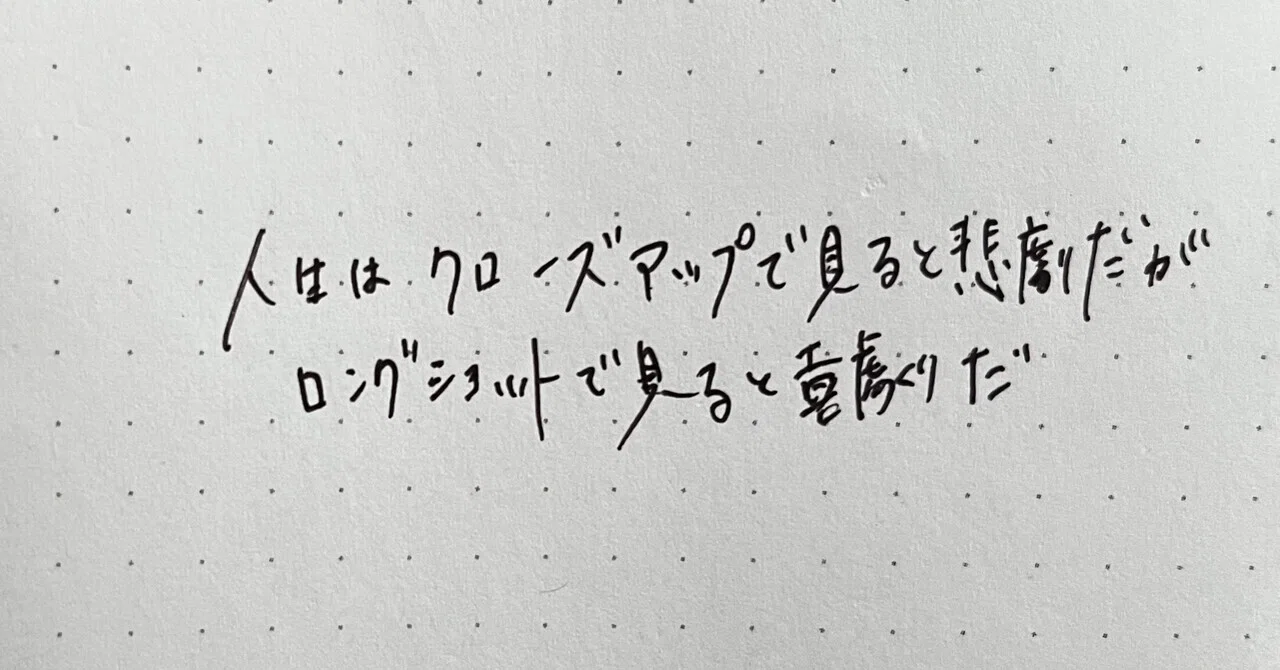 人生はクローズアップで見ると悲劇だが
ロングショットで見ると喜劇だ